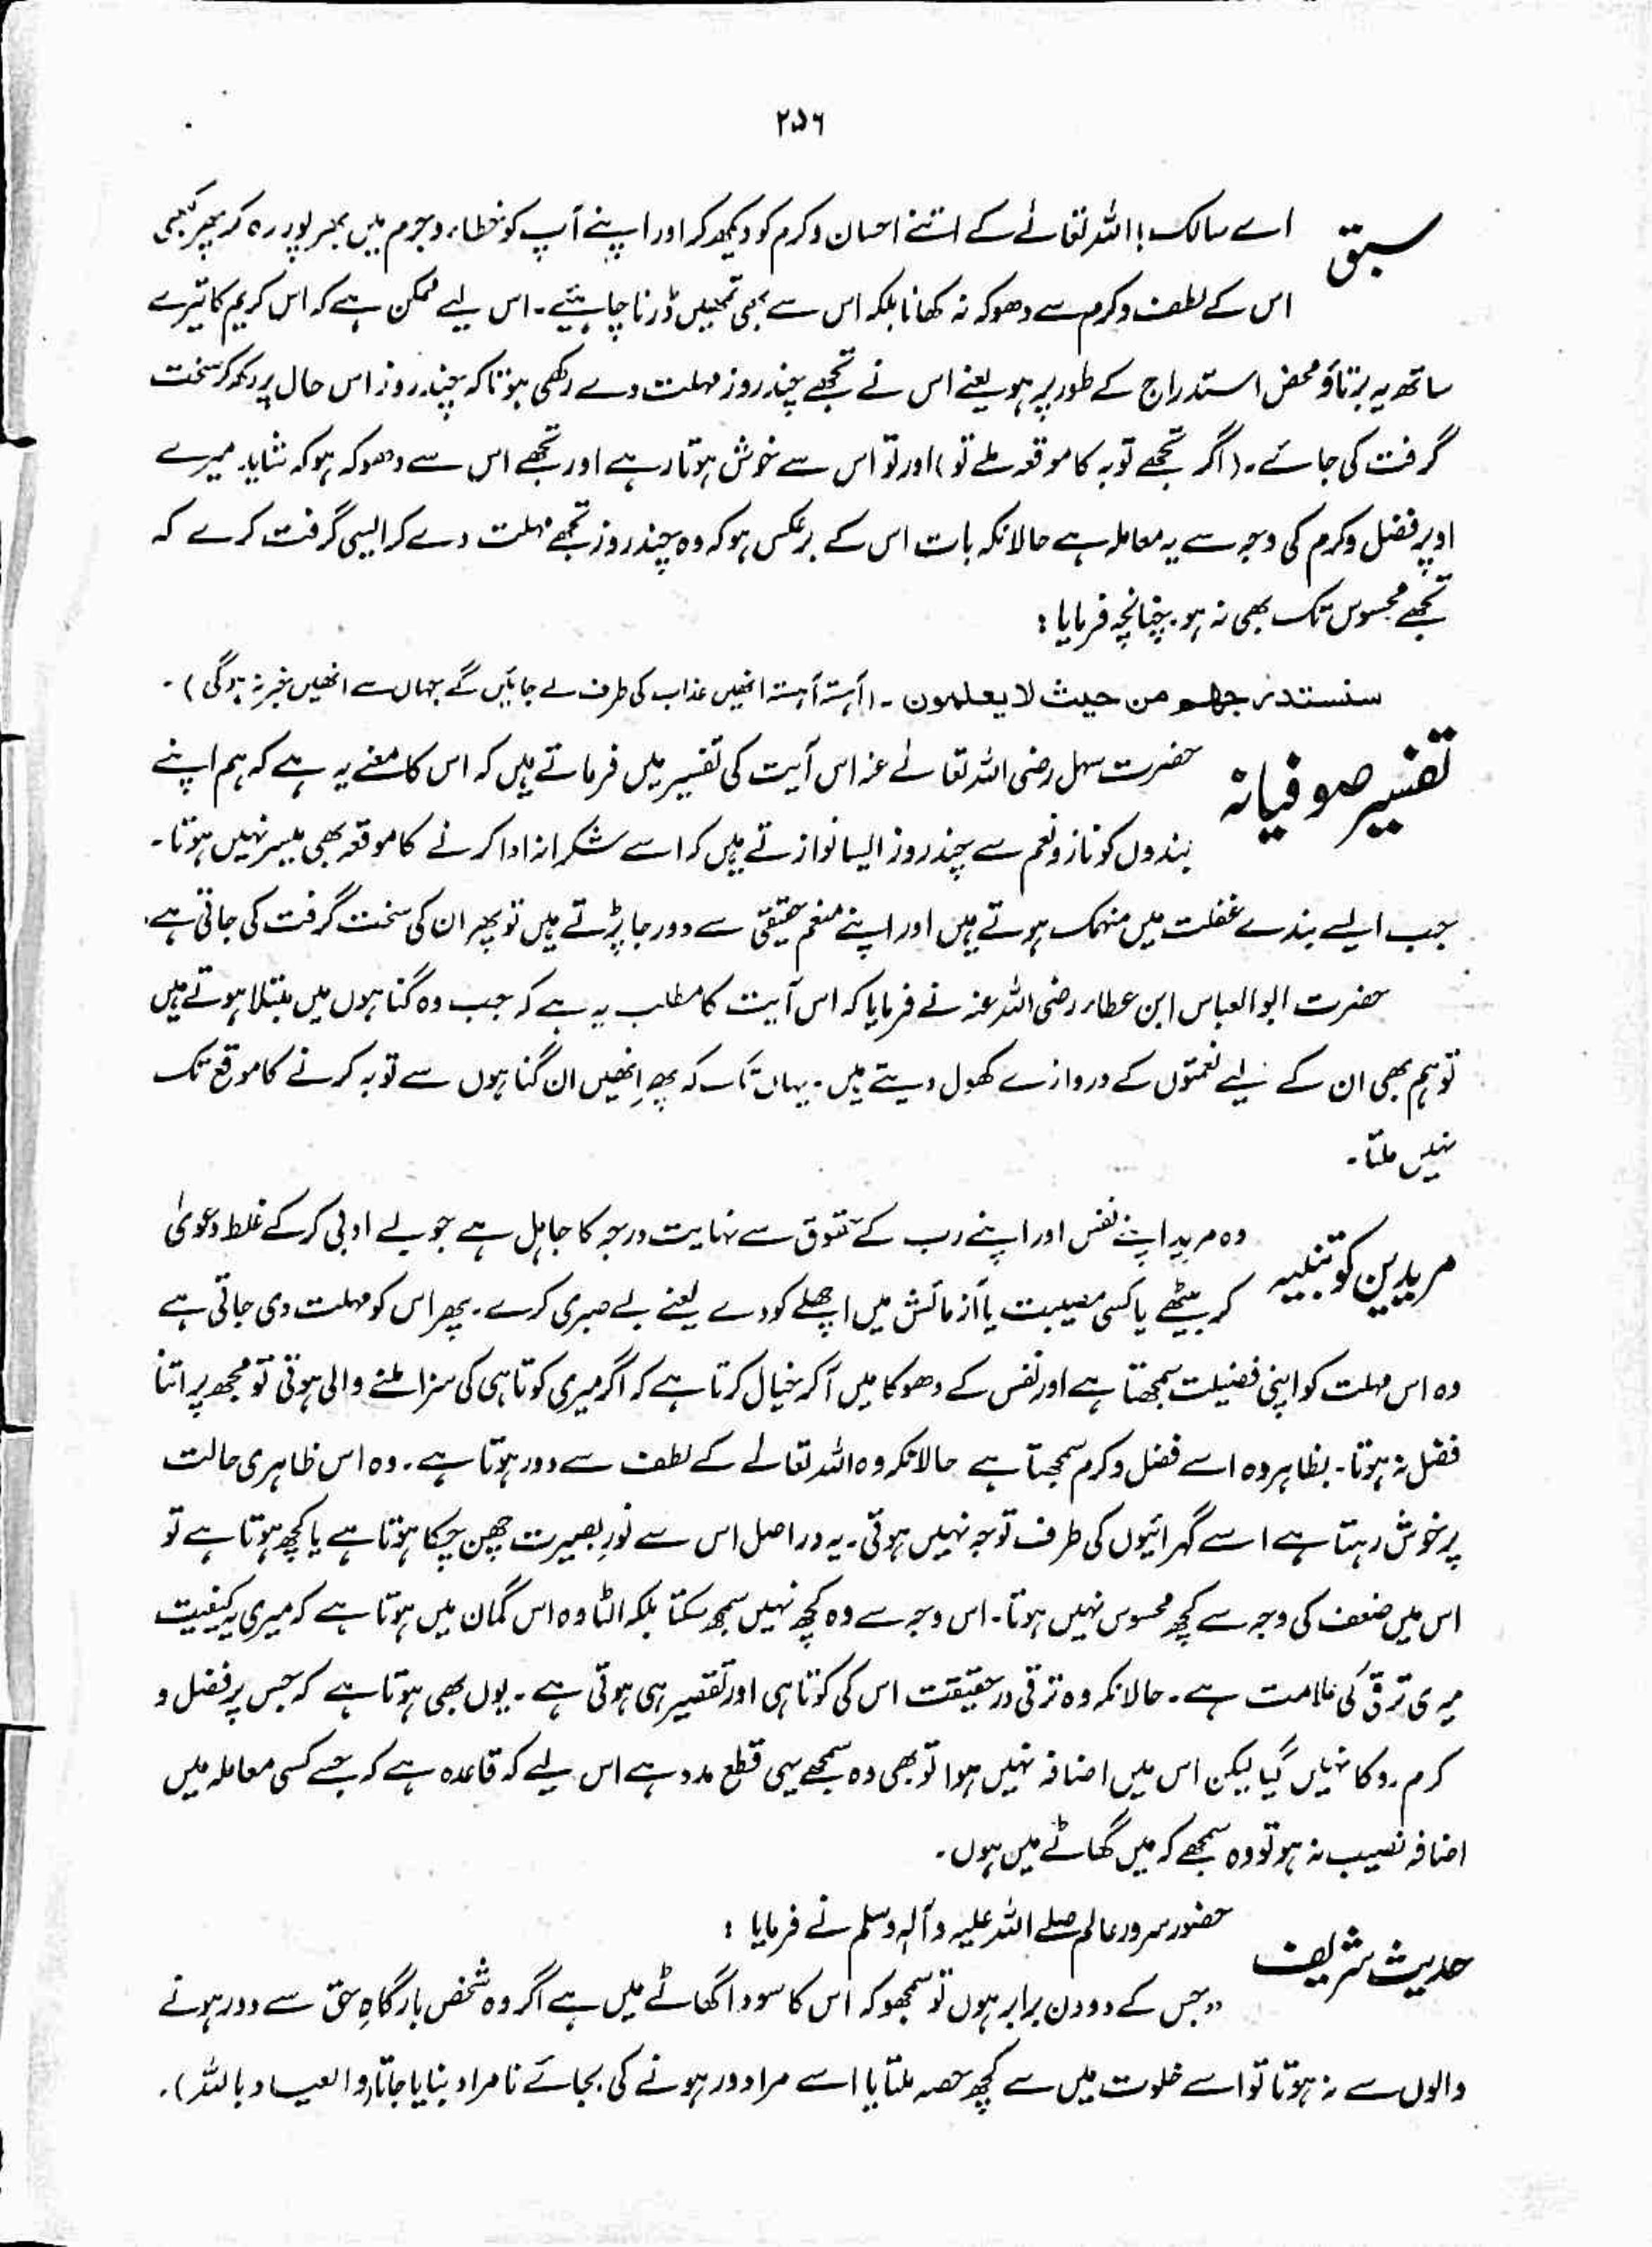 ۲۵۶
سبق
اے سالک! اللہ تعالےٰ کے اتنے احسان و کرم کو دیکھ کر اور اپنے آپ کو خطاء و جرم میں بھرپور رہ کر پھر کبھی
اس کے لطف و کرم سے دھوکہ نہ کھانا بلکہ اس سے بھی تمھیں ڈرنا چاہئیے۔ اس لیے ممکن ہے کہ اس کریم کا تیرے
ساتھ یہ برتاؤ محض استدراج کے طور پر ہو یعنے اس نے تجھے چند روز مہلت دے رکھی ہو تاکہ چند روز اس حال پر رکھ کر سخت
گرفت کی جائے۔ (اگر تجھے توبہ کا موقعہ ملے تو) اور تو اس سے خوش ہوتا رہے اور تجھے اس سے دھوکہ ہو کہ شاید میرے
اوپر فضل و کرم کی وجہ سے یہ معاملہ ہے حالانکہ بات اس کے برعکس ہو کہ وہ چند روز تجھے مہلت دے کر ایسی گرفت کرے کہ
تجھے محسوس تک بھی نہ ہو۔ چنانچہ فرمایا :
سنستدرجهم من حيث لا يعلمون ۔ (آہستہ آہستہ انھیں عذاب کی طرف لے جائیں گے جہاں سے انھیں خبر نہ ہوگی)۔
تفسیر صوفیانہ
حضرت سہل رضی اللہ تعالےٰ عنہ اس آیت کی تفسیر میں فرماتے ہیں کہ اس کا معنے یہ ہے کہ ہم اپنے
بندوں کو ناز و نعم سے چند روز ایسا نوازتے ہیں کہ اسے شکرانہ ادا کرنے کا موقعہ بھی میسر نہیں ہوتا۔
جب ایسے بندے غفلت میں منہمک ہوتے ہیں اور اپنے منعم حقیقی سے دور جا پڑتے ہیں تو پھر ان کی سخت گرفت کی جاتی ہے۔
حضرت ابوالعباس ابن عطاء رضی اللہ عنہ نے فرمایا کہ اس آیت کا مطلب یہ ہے کہ جب وہ گناہوں میں مبتلا ہوتے ہیں
تو ہم بھی ان کے لیے نعمتوں کے دروازے کھول دیتے ہیں۔ یہاں تک کہ پھر انھیں ان گناہوں سے توبہ کرنے کا موقع تک
نہیں ملتا۔
مریدین کو تنبیہ
وہ مرید اپنے نفس اور اپنے رب کے حقوق سے نہایت درجہ کا جاہل ہے جو بے ادبی کر کے غلط دعویٰ
کر بیٹھے یا کسی مصیبت یا آزمائش میں اچھلے کودے یعنے بے صبری کرے۔ پھر اس کو مہلت دی جاتی ہے
وہ اس مہلت کو اپنی فضیلت سمجھتا ہے اور نفس کے دھوکا میں آکر خیال کرتا ہے کہ اگر میری کوتاہی کی سزا ملنے والی ہوتی تو مجھ پر اتنا
فضل نہ ہوتا۔ بظاہر وہ اسے فضل و کرم سمجھتا ہے حالانکہ وہ اللہ تعالےٰ کے لطف سے دور ہوتا ہے۔ وہ اس ظاہری حالت
پر خوش رہتا ہے اسے گہرائیوں کی طرف توجہ نہیں ہوتی۔ یہ دراصل اس سے نورِ بصیرت چھن چکا ہوتا ہے یا کچھ ہوتا ہے تو
اس میں ضعف کی وجہ سے کچھ محسوس نہیں ہوتا۔ اس وجہ سے وہ کچھ نہیں سمجھ سکتا بلکہ الٹا وہ اس گمان میں ہوتا ہے کہ میری یہ کیفیت
میری ترقی کی علامت ہے۔ حالانکہ وہ ترقی درحقیقت اس کی کوتاہی اور تقصیر ہی ہوتی ہے۔ یوں بھی ہوتا ہے کہ جس پر فضل و
کرم روکا نہیں گیا لیکن اس میں اضافہ نہیں ہوا تو بھی وہ سمجھے یہی قطع مدد ہے اس لیے کہ قاعدہ ہے کہ جسے کسی معاملہ میں
اضافہ نصیب نہ ہو تو وہ سمجھے کہ میں گھاٹے میں ہوں۔
حدیث شریف
حضور سرور عالم صلے اللہ علیہ وآلہ وسلم نے فرمایا :
"جس کے دو دن برابر ہوں تو سمجھو کہ اس کا سودا گھاٹے میں ہے اگر وہ شخص بارگاہِ حق سے دور ہونے
والوں سے نہ ہوتا تو اسے خلوت میں سے کچھ حصہ ملتا یا اسے مراد ور ہونے کی بجائے نامراد بنایا جاتا (والعیاذ باللہ)۔